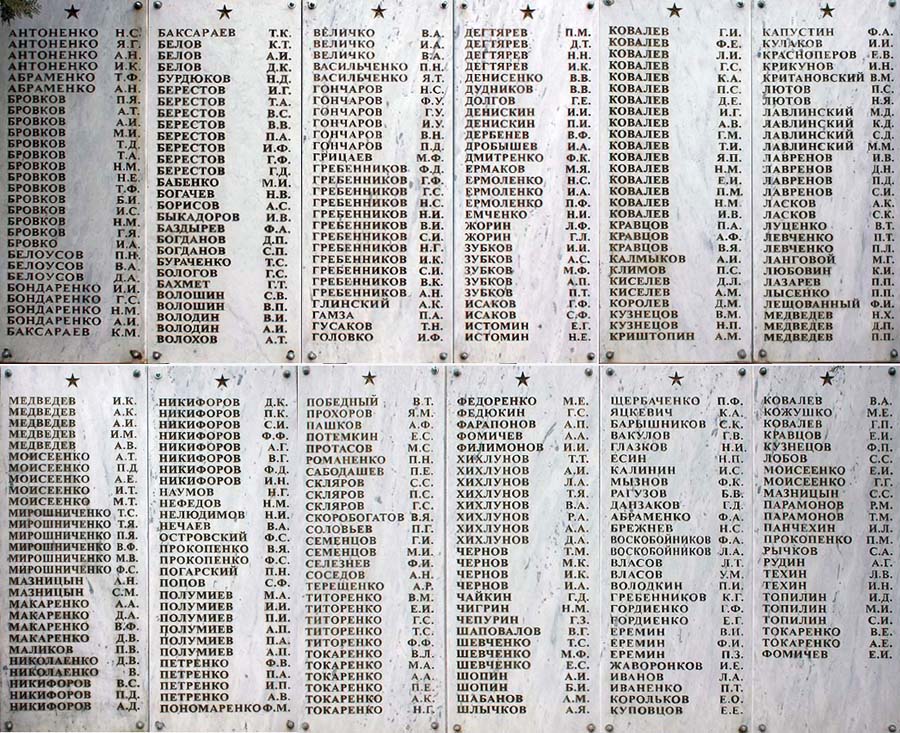 АНТОНЕНКО Н.С.
АНТОНЕНКО Я.Г.
АНТОНЕНКО А.Н.
АНТОНЕНКО И.К.
АБРАМЕНКО Т.Ф.
АБРАМЕНКО А.Н.
БРОВКОВ П.Я.
БРОВКОВ А.Т.
БРОВКОВ А.И.
БРОВКОВ М.И.
БРОВКОВ Т.Д.
БРОВКОВ Т.А.
БРОВКОВ Н.М.
БРОВКОВ Н.Е.
БРОВКОВ Т.Ф.
БРОВКОВ Б.И.
БРОВКОВ И.С.
БРОВКОВ Н.М.
БРОВКОВ Г.Я.
БРОВКО И.А.
БЕЛОУСОВ П.Н.
БЕЛОУСОВ В.А.
БЕЛОУСОВ Д.А.
БОНДАРЕНКО И.И.
БОНДАРЕНКО Г.С.
БОНДАРЕНКО Н.М.
БОНДАРЕНКО А.И.
БАКСАРАЕВ К.М.
БАКСАРАЕВ Т.К.
БЕЛОВ К.Т.
БЕЛОВ А.Я.
БЕЛОВ Д.К.
БУРДЮКОВ Н.Д.
БЕРЕСТОВ И.Г.
БЕРЕСТОВ Т.А.
БЕРЕСТОВ В.С.
БЕРЕСТОВ В.В.
БЕРЕСТОВ П.А.
БЕРЕСТОВ И.Ф.
БЕРЕСТОВ Г.Ф.
БЕРЕСТОВ Г.Д.
БАБЕНКО М.И.
БОГАЧЕВ Н.В.
БОРИСОВ А.С.
БЫКАДОРОВ И.В.
БАЗДЫРЕВ Ф.А.
БОГДАНОВ Д.П.
БОГДАНОВ С.П.
БУРАЧЕНКО Т.С.
БОЛОГОВ Г.С.
БАХМЕТ Г.Т.
ВОЛОШИН С.В.
ВОЛОШИН В.П.
ВОЛОДИН В.И.
ВОЛОДИН А.И.
ВОЛОХОВ А.Т.
ВЕЛИЧКО В.А.
ВЕЛИЧКО И.А.
ВЕЛИЧКО В.А.
ВАСИЛЬЧЕНКО П.Н.
ВАСИЛЬЧЕНКО Я.Т.
ГОНЧАРОВ Н.С.
ГОНЧАРОВ Ф.У.
ГОНЧАРОВ Г.У.
ГОНЧАРОВ И.У.
ГОНЧАРОВ В.Н.
ГОНЧАРОВ П.Д.
ГРИЦАЕВ М.Ф.
ГРЕБЕННИКОВ Ф.Д.
ГРЕБЕННИКОВ Г.Ф.
ГРЕБЕННИКОВ Г.С.
ГРЕБЕННИКОВ Н.С.
ГРЕБЕННИКОВ Н.И.
ГРЕБЕННИКОВ В.И.
ГРЕБЕННИКОВ С.И.
ГРЕБЕННИКОВ Н.Г.
ГРЕБЕННИКОВ И.К.
ГРЕБЕННИКОВ С.И.
ГРЕБЕННИКОВ В.К.
ГРЕБЕННИКОВ А.Н.
ГЛИНСКИЙ А.К.
ГАМЗА П.А.
ГУСАКОВ Т.Н.
ГОЛОВКО И.Ф.
ДЕГТЯРЕВ П.М.
ДЕГТЯРЕВ Д.Т.
ДЕГТЯРЕВ Н.Н.
ДЕГТЯРЕВ И.К.
ДЕНИСЕНКО В.В.
ДУДНИКОВ В.В.
ДОЛГОВ Г.Е.
ДЕНИСКИН И.И.
ДЕНИСКИН П.И.
ДЕРБЕНЕВ В.Ф.
ДРОБЫШЕВ И.А.
ДМИТРЕНКО Ф.К.
ЕРМАКОВ М.Я.
ЕРМОЛЕНКО Н.С.
ЕРМОЛЕНКО И.А.
ЕРМОЛЕНКО П.Ф.
ЕМЧЕНКО Н.И.
ЖОРИН Л.Ф.
ЖОРИН Г.Л.
ЗУБКОВ И.И.
ЗУБКОВ А.С.
ЗУБКОВ М.Ф.
ЗУБКОВ А.П.
ЗУБКОВ П.Т.
ИСАКОВ Г.Ф.
ИСАКОВ С.Ф.
ИСТОМИН Е.Г.
ИСТОМИН Н.Е.
КОВАЛЕВ Г.И.
КОВАЛЕВ Ф.Е.
КОВАЛЕВ И.Л.
КОВАЛЕВ Г.С.
КОВАЛЕВ К.А.
КОВАЛЕВ П.С.
КОВАЛЕВ Д.Е.
КОВАЛЕВ И.Г.
КОВАЛЕВ А.В.
КОВАЛЕВ Г.М.
КОВАЛЕВ Т.И.
КОВАЛЕВ Я.П.
КОВАЛЕВ Н.М.
КОВАЛЕВ Е.И.
КОВАЛЕВ Н.М.
КОВАЛЕВ Н.М.
КОВАЛЕВ И.В.
КРАВЦОВ П.А.
КРАВЦОВ А.Ф.
КРАВЦОВ В.Я.
КАЛМЫКОВ А.И.
КЛИМОВ П.С.
КИСЕЛЕВ Д.Л.
КИСЕЛЕВ А.М.
КОРОЛЕВ Д.М.
КУЗНЕЦОВ В.М.
КУЗНЕЦОВ Н.П.
КРИШТОПИН А.М.
КАПУСТИН Ф.А.
КУЛАКОВ И.И.
КРАСНОПЕРОВ Е.В.
КРИКУНОВ А.Н.
КРИТАНОВСКИЙ В.М.
ЛЮТОВ П.С.
ЛЮТОВ Н.Я.
ЛАВЛИНСКИЙ М.Д.
ЛАВЛИНСКИЙ К.Д.
ЛАВЛИНСКИЙ С.Д.
ЛАВЛИНСКИЙ М.М.
ЛАВРЕНОВ И.В.
ЛАВРЕНОВ Д.Н.
ЛАВРЕНОВ П.Д.
ЛАВРЕНОВ С.И.
ЛАСКОВ А.К.
ЛАСКОВ С.К.
ЛУЦЕНКО В.Т.
ЛЕВЧЕНКО П.Т.
ЛЕВЧЕНКО П.Л.
ЛАНГОВОЙ М.Г.
ЛЮБОВИН К.И.
ЛАЗАРЕВ П.П.
ЛЫСЕНКО П.П.
ЛЕЩОВАННЫЙ Ф.И.
МЕДВЕДЕВ Н.Х.
МЕДВЕДЕВ Д.П.
МЕДВЕДЕВ П.П.
МЕДВЕДЕВ И.К.
МЕДВЕДЕВ А.К.
МЕДВЕДЕВ А.И.
МЕДВЕДЕВ И.М.
МЕДВЕДЕВ А.В.
МОИСЕЕНКО А.Т.
МОИСЕЕНКО П.Д.
МОИСЕЕНКО А.Е.
МОИСЕЕНКО И.Т.
МОИСЕЕНКО М.Т.
МИРОШНИЧЕНКО Т.С.
МИРОШНИЧЕНКО Т.Я.
МИРОШНИЧЕНКО П.Я.
МИРОШНИЧЕНКО В.Ф.
МИРОШНИЧЕНКО М.В.
МИРОШНИЧЕНКО Ф.С.
МАЗНИЦЫН А.Н.
МАЗНИЦЫН С.М.
МАКАРЕНКО А.А.
МАКАРЕНКО Д.А.
МАКАРЕНКО В.Ф.
МАКАРЕНКО Д.В.
МАЛИКОВ П.В.
НИКОЛАЕНКО Д.В.
НИКОЛАЕНКО В.
НИКИФОРОВ В.С.
НИКИФОРОВ П.Д.
НИКИФОРОВ А.Д.
НИКИФОРОВ Д.К.
НИКИФОРОВ П.К.
НИКИФОРОВ С.И.
НИКИФОРОВ Ф.Ф.
НИКИФОРОВ А.Г.
НИКИФОРОВ В.Г.
НИКИФОРОВ Ф.Д.
НИКИФОРОВ И.Н.
НАУМОВ Н.Г.
НЕФЕДОВ Н.М.
НЕЛЮДИМОВ Н.И.
НЕЧАЕВ В.А.
ОСТРОВСКИЙ Ф.С.
ПРОКОПЕНКО В.Я.
ПРОКОПЕНКО Ф.С.
ПОГАРСКИЙ П.Н.
ПОПОВ С.Ф.
ПОЛУМИЕВ М.А.
ПОЛУМИЕВ И.И.
ПОЛУМИЕВ П.И.
ПОЛУМИЕВ А.П.
ПОЛУМИЕВ П.А.
ПОЛУМИЕВ А.П.
ПЕТРЕНКО Ф.В.
ПЕТРЕНКО П.А.
ПЕТРЕНКО И.П.
ПЕТРЕНКО А.В.
ПОНОМАРЕНКО Ф.М.
ПОБЕДНЫЙ В.Т.
ПРОХОРОВ Я.М.
ПАШКОВ А.Ф.
ПОТЕМКИН Е.С.
ПРОТАСОВ М.С.
РОМАНЕНКО П.Н.
САБОДАШЕВ П.Е.
СКЛЯРОВ С.С.
СКЛЯРОВ П.С.
СКЛЯРОВ Г.С.
СКОРОБОГАТОВ В.Я.
СОЛОВЬЕВ П.Г.
СЕМЕНЦОВ Г.И.
СЕМЕНЦОВ М.И.
СЕЛЕЗНЕВ Ф.И.
СОСЕДОВ А.Н.
ТЕРЕЩЕНКО А.Р.
ТИТОРЕНКО В.М.
ТИТОРЕНКО Е.И.
ТИТОРЕНКО Г.С.
ТИТОРЕНКО Т.С.
ТИТОРЕНКО Ф.Ф.
ТОКАРЕНКО В.Л.
ТОКАРЕНКО М.А.
ТОКАРЕНКО А.А.
ТОКАРЕНКО П.Е.
ТОКАРЕНКО А.К.
ТОКАРЕНКО Н.Г.
ФЕДОРЕНКО М.Е.
ФЕДЮКИН Г.С.
ФАРАПОНОВ А.П.
ФОМИЧЕВ А.А.
ФИЛИМОНОВ И.И.
ХИХЛУНОВ Т.Т.
ХИХЛУНОВ А.И.
ХИХЛУНОВ И.Л.
ХИХЛУНОВ Т.Я.
ХИХЛУНОВ В.А.
ХИХЛУНОВ Р.А.
ХИХЛУНОВ А.А.
ХИХЛУНОВ Д.А.
ЧЕРНОВ Т.М.
ЧЕРНОВ М.К.
ЧЕРНОВ И.К.
ЧЕРНОВ И.А.
ЧАЙКИН Г.Д.
ЧИГРИН Н.М.
ЧЕПУРИН Г.З.
ШАПОВАЛОВ В.Г.
ШЕВЧЕНКО Т.С.
ШЕВЧЕНКО М.Ф.
ШЕВЧЕНКО Е.С.
ШОПИН А.И.
ШОПИН Б.И.
ШАБАНОВ А.М.
ШЛЫЧКОВ А.Я.
ЩЕРБАЧЕНКО П.Ф.
ЯЦКЕВИЧ К.А.
БАРЫШНИКОВ С.К.
ВАКУЛОВ Г.В.
ГЛАЗКОВ Н.И.
ЕСИН Н.П.
КАЛИНИН И.С.
МЫЗНОВ А.Г.
РАГУЗОВ Б.В.
ДАНЗАКОВ Г.Д.
АБРАМЕНКО Ф.А.
БРЕЖНЕВ Н.С.
ВОСКОБОЙНИКОВ Ф.А.
ВОСКОБОЙНИКОВ Л.А.
ВЛАСОВ Л.Т.
ВЛАСОВ У.М.
ВОЛОДКИН П.И.
ГРЕБЕННИКОВ К.Г.
ГОРДИЕНКО Г.Ф.
ГОРДИЕНКО Е.Г.
ЕРЕМИН В.И.
ЕРЕМИН Ф.И.
ЕРЕМИН П.З.
ЖАВОРОНКОВ И.Е.
ИВАНОВ Л.А.
ИВАНЕНКО П.Т.
КОРОЛЬКОВ Е.О.
КУПОВЦОВ Е.Е.
КОВАЛЕВ В.А.
КОЖУШКО М.Е.
КОВАЛЕВ Г.П.
КРАВЦОВ Е.И.
КУЗНЕЦОВ Ф.П.
ЛОБОВ С.С.
МОИСЕЕНКО Е.И.
МОИСЕЕНКО Г.Г.
МАЗНИЦЫН С.С.
ПАРАМОНОВ Р.М.
ПАРАМОНОВ Т.М.
ПАНЧЕХИН И.Д.
ПРОКОПЕНКО П.М.
РЫЧКОВ С.А.
РУДИН А.Г.
ТЕХИН Л.В.
ТЕХИН И.Н.
ТОПИЛИН И.Д.
ТОПИЛИН М.И.
ТОПИЛИН С.И.
ТОКАРЕНКО В.Е.
ТОКАРЕНКО А.Е.
ФОМИЧЕВ Е.И.